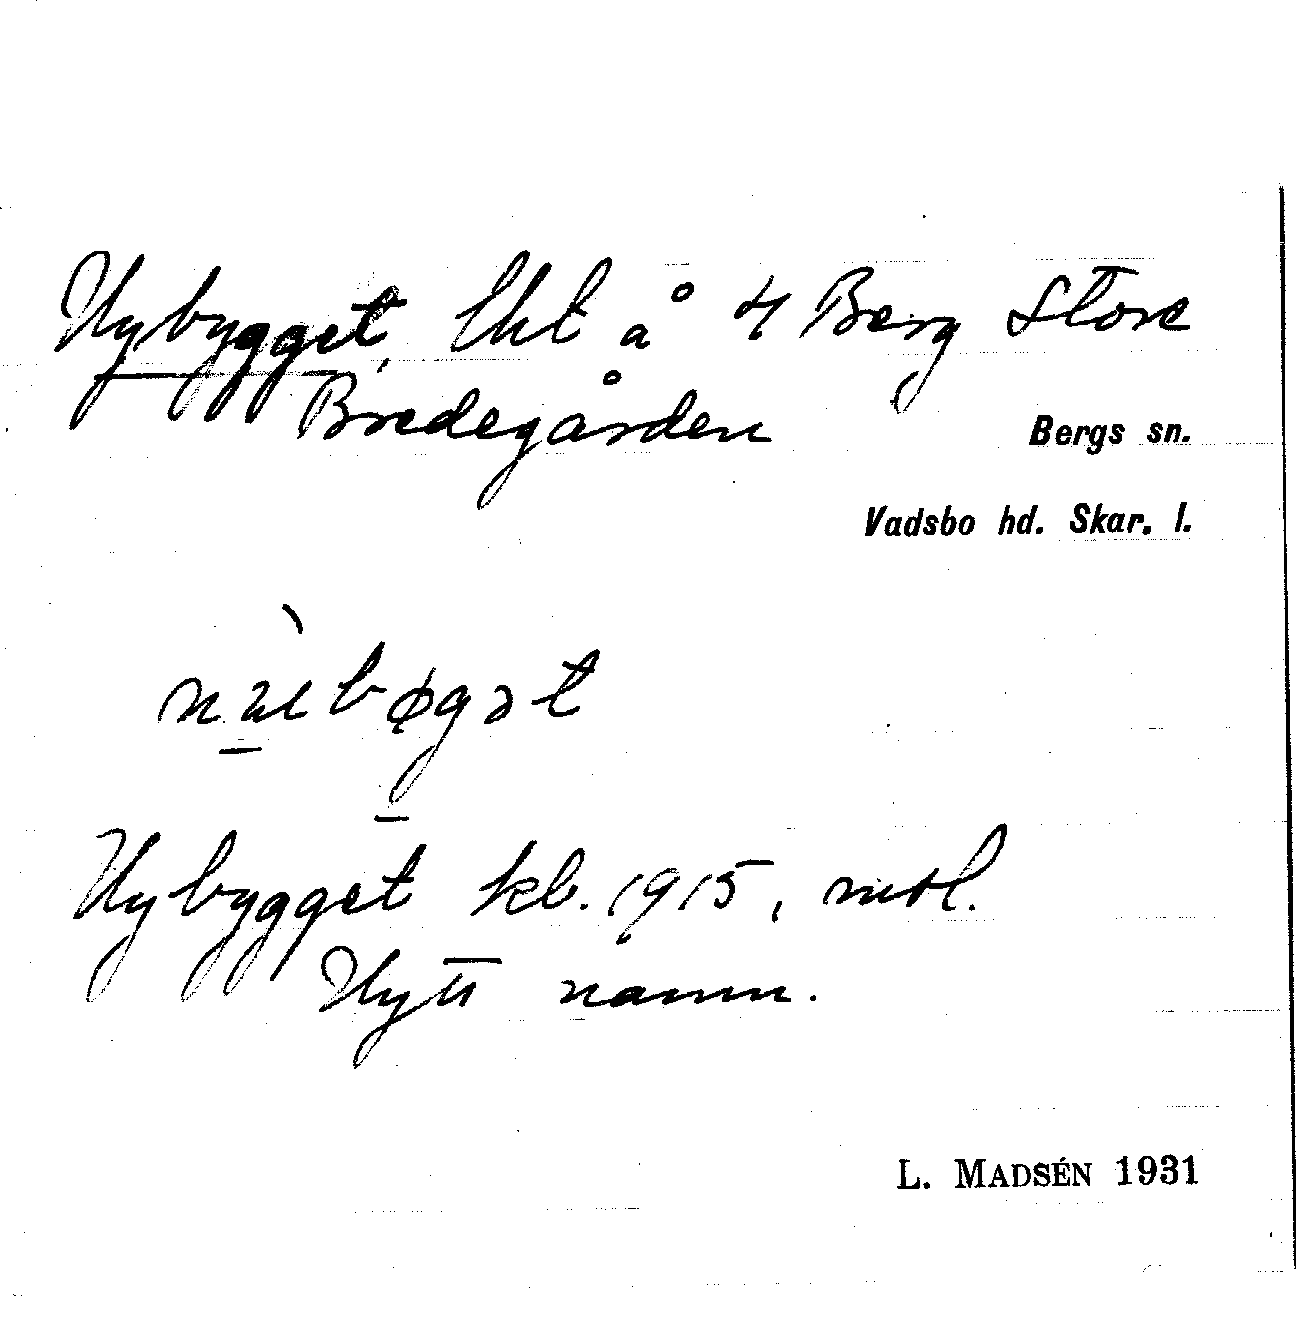 Nybygget, lht å 4 Berg Store
Bredegården
Bergs sn.
Vadsbo hd. Skar. l.
Nybygget kb. 1915, mtl.
Nytt namn.
L. MADSÉN 1931